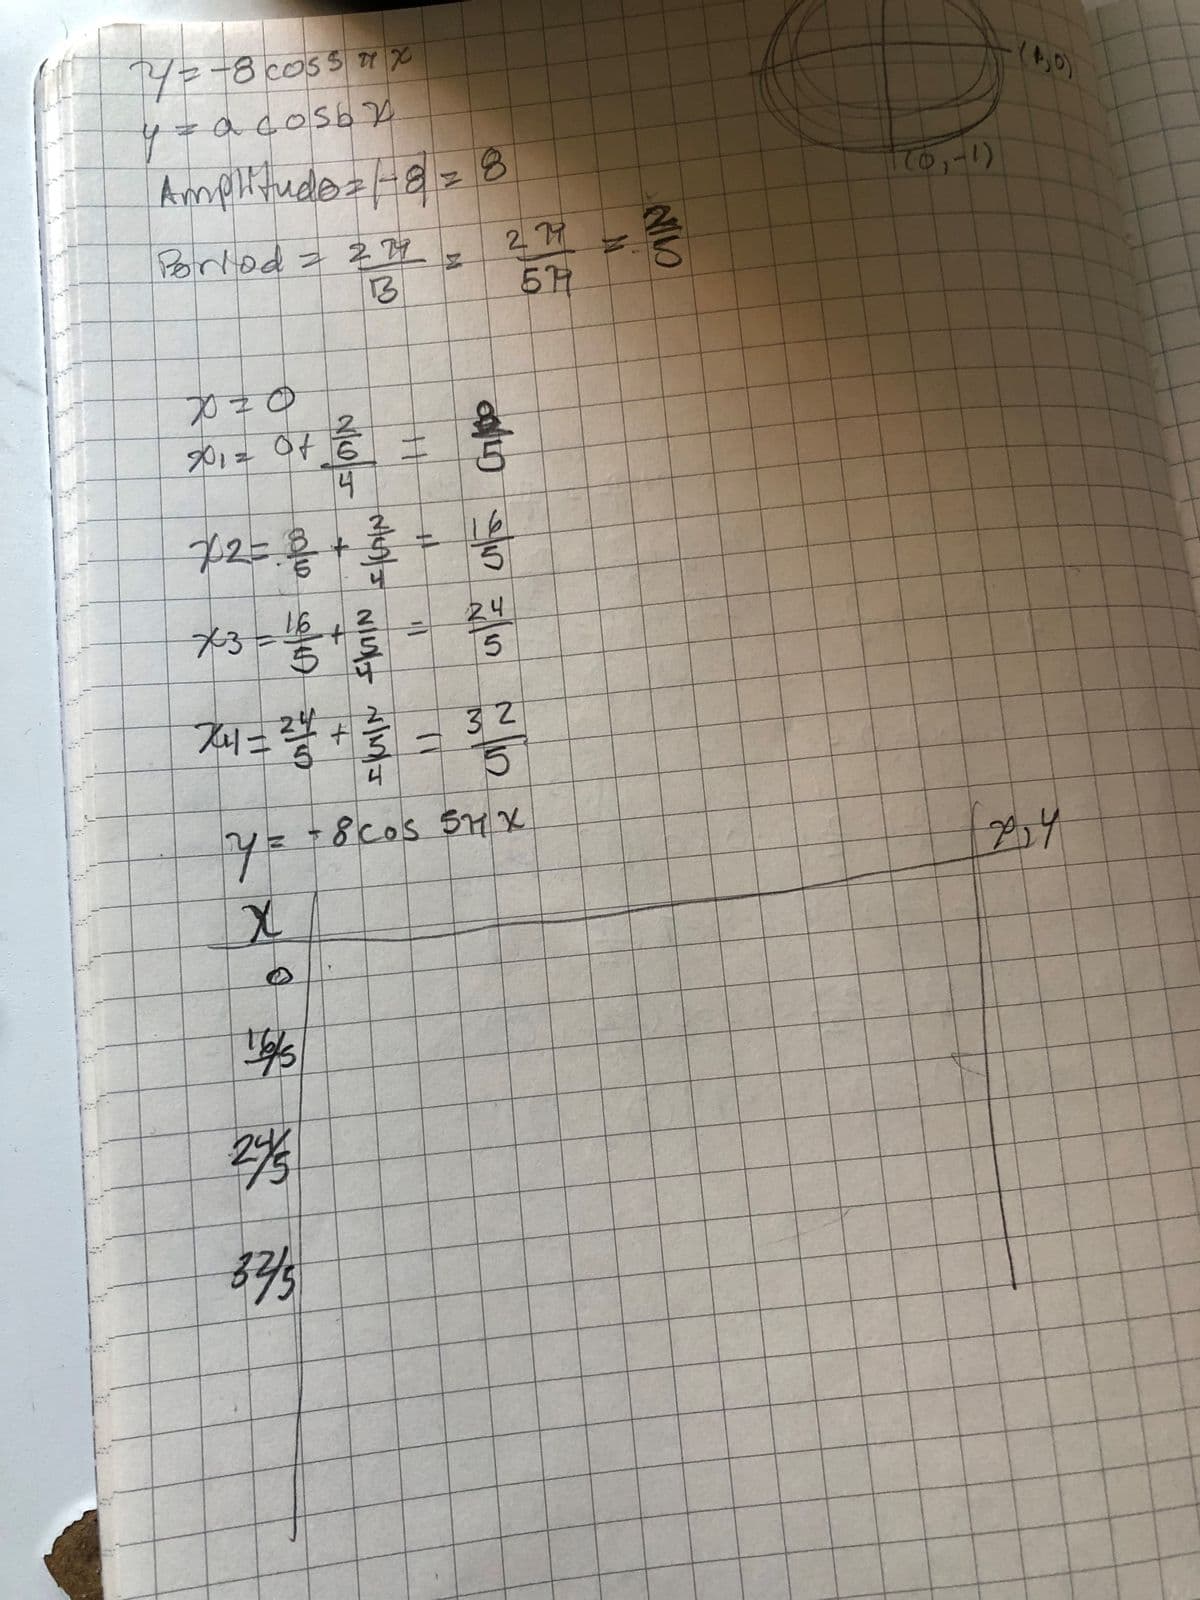 y = -8 cos 5 π x
y = a cos b x
Amplitude = |-8| = 8
Period = 2π/B = 2π/5π = 2/5
(1,0)
(0,-1)
x = 0
x1 = 0 + 2/5/4 = 8/5
x2 = 8/5 + 2/5/4 = 16/5
x3 = 16/5 + 2/5/4 = 24/5
x4 = 24/5 + 2/5/4 = 32/5
y = -8 cos 5π x
x x,y
0
16/5
24/5
32/5